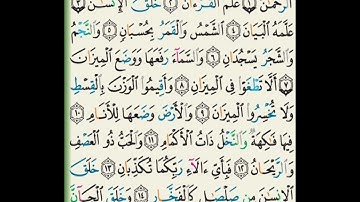 الرَّحْمَٰنُ ١ عَلَّمَ الْقُرْءَانَ ٢ خَلَقَ الْإِنسَٰنَ ٣
عَلَّمَهُ الْبَيَانَ ٤ الشَّمْسُ وَالْقَمَرُ بِحُسْبَانٍ ٥ وَالنَّجْمُ
وَالشَّجَرُ يَسْجُدَانِ ٦ وَالسَّمَآءَ رَفَعَهَا وَوَضَعَ الْمِيزَانَ
٧ أَلَّا تَطْغَوْا فِي الْمِيزَانِ ٨ وَأَقِيمُوا الْوَزْنَ بِالْقِسْطِ
وَلَا تُخْسِرُوا الْمِيزَانَ ٩ وَالْأَرْضَ وَضَعَهَا لِلْأَنَامِ ١٠
فِيهَا فَٰكِهَةٌ وَالنَّخْلُ ذَاتُ الْأَكْمَامِ ١١ وَالْحَبُّ ذُو الْعَصْفِ
وَالرَّيْحَانُ ١٢ فَبِأَيِّ ءَالَآءِ رَبِّكُمَا تُكَذِّبَانِ ١٣ خَلَقَ
الْإِنسَٰنَ مِن صَلْصَٰلٍ كَالْفَخَّارِ ١٤ وَخَلَقَ الْجَآنَّ